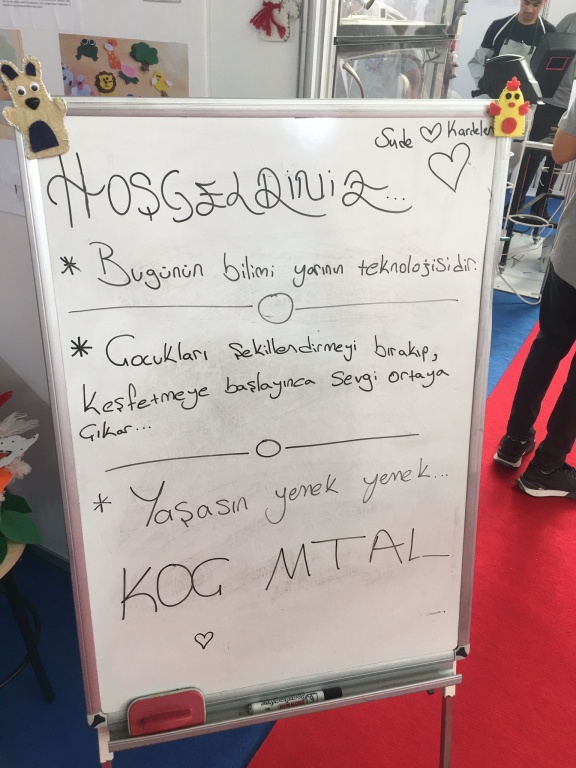 Sude ♡ Kardelen
HOŞGELDİNİZ...
* Bugünün bilimi yarının teknolojisidir.
* Çocukları şekillendirmeyi bırakıp,
keşfetmeye başlayınca sevgi ortaya
çıkar...
* Yaşasın yemek yemek...
KOÇ MTAL